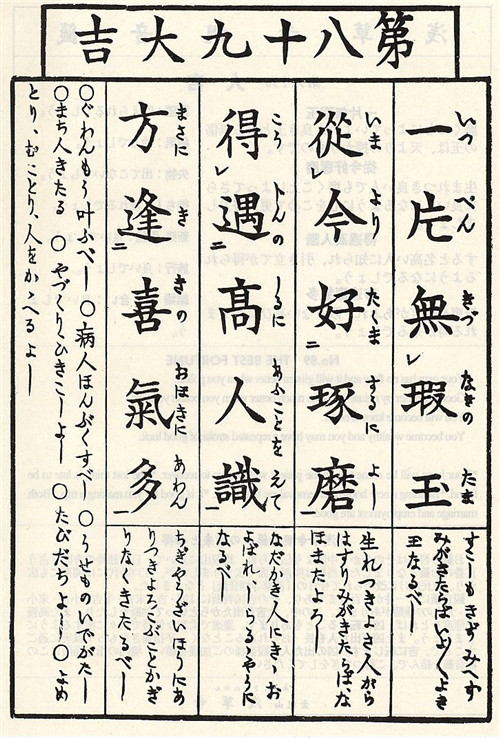 第八十九大吉
一片無瑕玉
いつ ぺん きづ なきの たま
すこしもきずみへず
みがきたらばいよ〱よき
玉なるべし
從レ今好二琢磨一
いま より たくま するに よし
生れつきよき人から
はすりみがきたらばな
ほまたよろし
得レ遇二高人識一
こうじんの しるに あふことを えて
なだかき人にきゝお
よばれしらるゝやうに
なるべし
方逢二喜氣多一
まさに き きの おほきに あわん
ちぎやうざいほうにあ
りつきよろこぶことかぎ
りなくきたるべし
〇ぐわんもう叶ふべし 〇病人ほんぶくすべし 〇うせものいでがたし
〇まち人きたる 〇やづくりひきこしよし 〇たびだちよし 〇よめ
とり、むことり、人をかゝへるよし